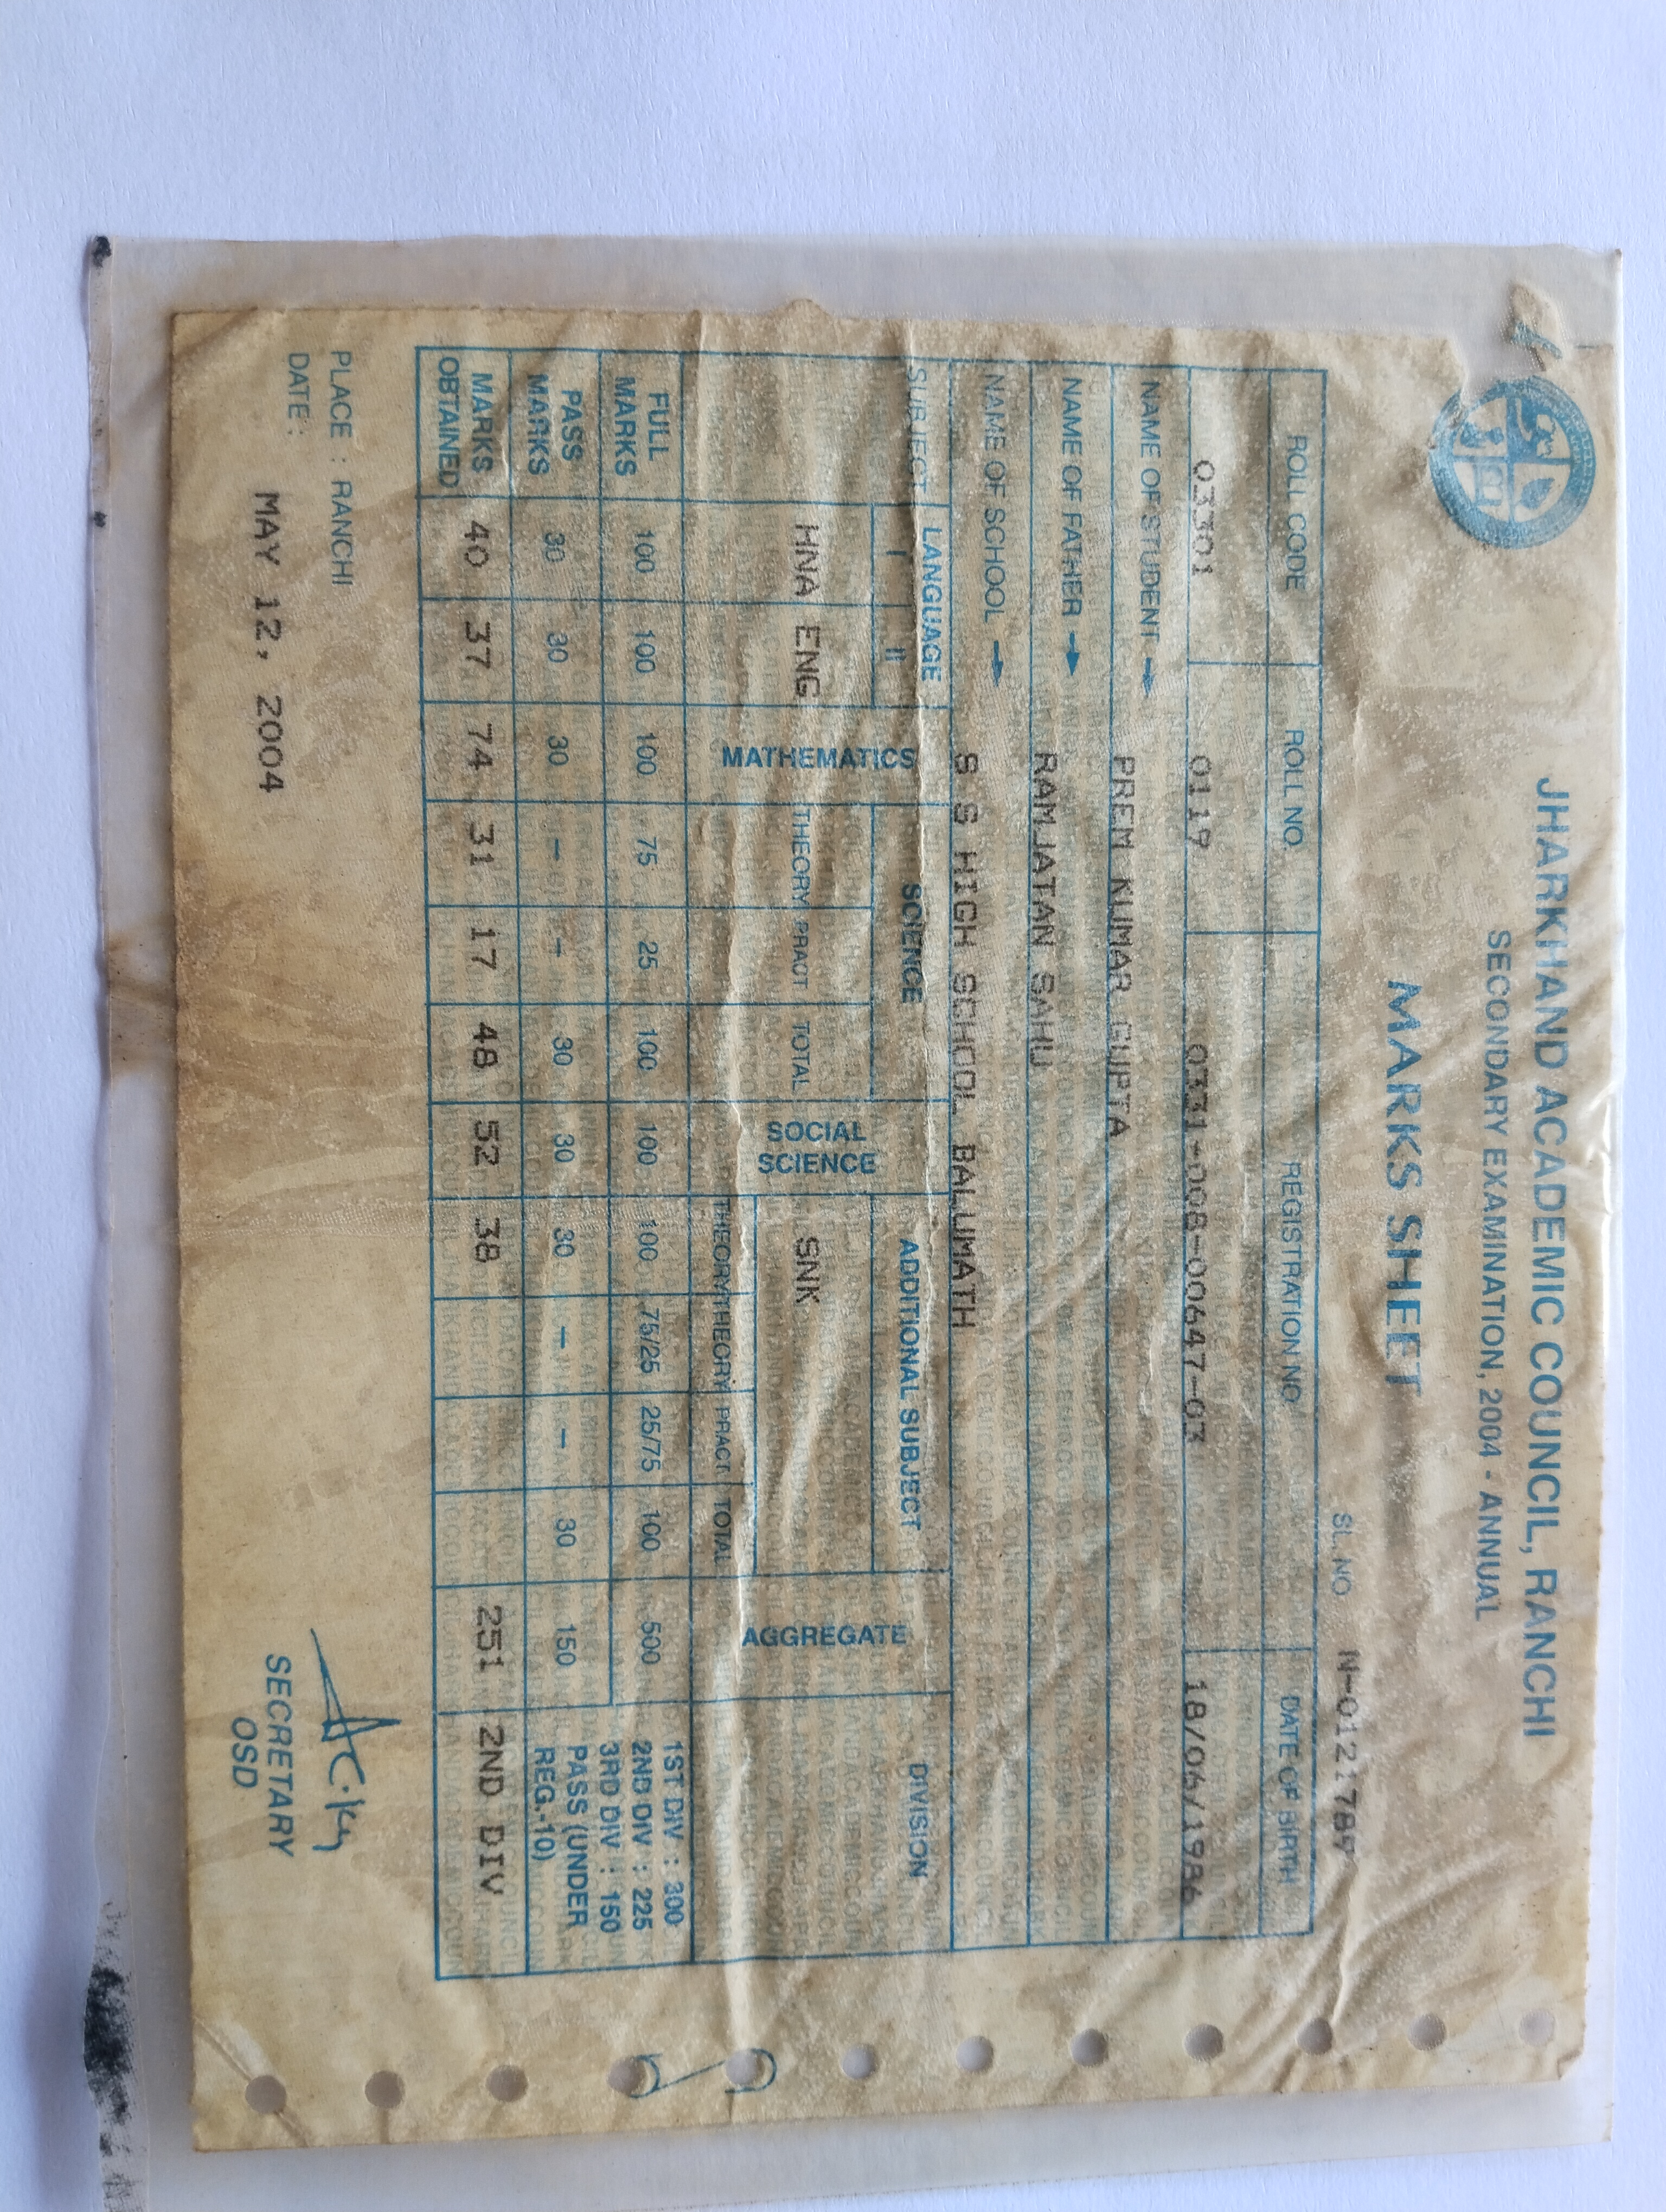 JHARKHAND ACADEMIC COUNCIL, RANCHI
SECONDARY EXAMINATION, 2004 - ANNUAL
MARKS SHEET
SL. NO. N-0121789
ROLL CODE ROLL NO. REGISTRATION NO. DATE OF BIRTH
03301 0117 0331-008-00647-03 18/06/1986
NAME OF STUDENT → PREM KUMAR GUPTA
NAME OF FATHER → RAMJATAN SAHU
NAME OF SCHOOL → S S HIGH SCHOOL BALUMATH
SUBJECT LANGUAGE MATHEMATICS SCIENCE SOCIAL SCIENCE ADDITIONAL SUBJECT AGGREGATE DIVISION
I II THEORY PRACT TOTAL
HNA ENG SNK
THEORY THEORY PRACT. TOTAL
FULL MARKS 100 100 100 75 25 100 100 100 75/25 25/75 100 500 1ST DIV : 300
2ND DIV : 225
3RD DIV : 150
PASS MARKS 30 30 30 – – 30 30 30 – – 30 150 PASS (UNDER REG.-10)
MARKS OBTAINED 40 37 74 31 17 48 52 38 251 2ND DIV
PLACE : RANCHI
DATE : MAY 12, 2004
SECRETARY
OSD